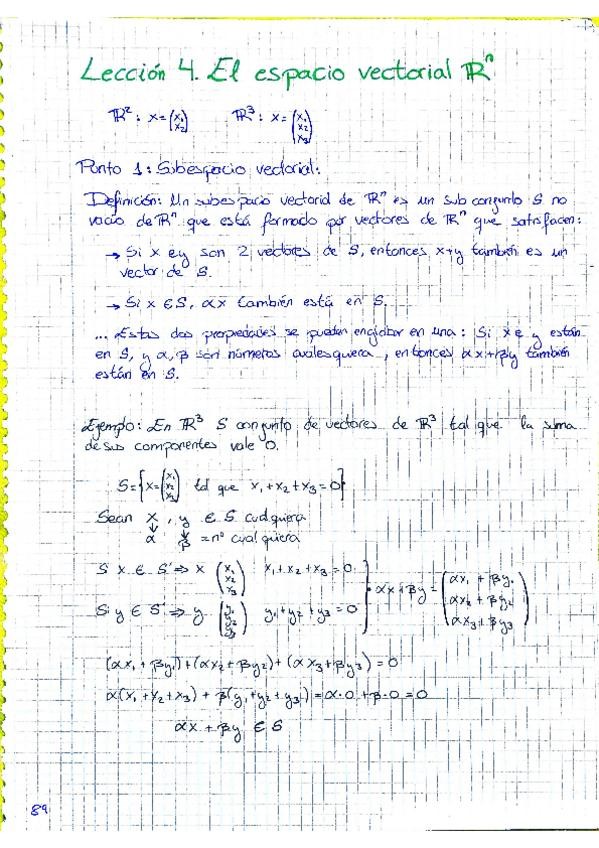 Lección 4. El espacio vectorial ℝⁿ
ℝ²: x = (x₁ x₂) ℝ³: x = (x₁ x₂ x₃)
Punto 1: Subespacio vectorial:
Definición: Un subespacio vectorial de ℝⁿ es un subconjunto S no
vacío de ℝⁿ que está formado por vectores de ℝⁿ que satisfacen:
→ Si x e y son 2 vectores de S, entonces x+y también es un
vector de S.
→ Si x ∈ S, αx también está en S.
... Estas dos propiedades se pueden englobar en una: Si x e y están
en S, y α, β son números cualesquiera, entonces αx+βy también
están en S.
Ejemplo: En ℝ³ S conjunto de vectores de ℝ³ tal que la suma
de sus componentes vale 0.
S = {x = (x₁ x₂ x₃) tal que x₁+x₂+x₃ = 0}
Sean x, y ∈ S cualquiera
↓ ↓
α β = nº cualquiera
Si x ∈ S ⇒ x (x₁ x₂ x₃) x₁+x₂+x₃ = 0
αx+βy = (αx₁+βy₁ αx₂+βy₂ αx₃+βy₃)
Si y ∈ S ⇒ y (y₁ y₂ y₃) y₁+y₂+y₃ = 0
(αx₁+βy₁)+(αx₂+βy₂)+(αx₃+βy₃) = 0
α(x₁+x₂+x₃)+β(y₁+y₂+y₃) = α·0+β·0 = 0
αx+βy ∈ S
89